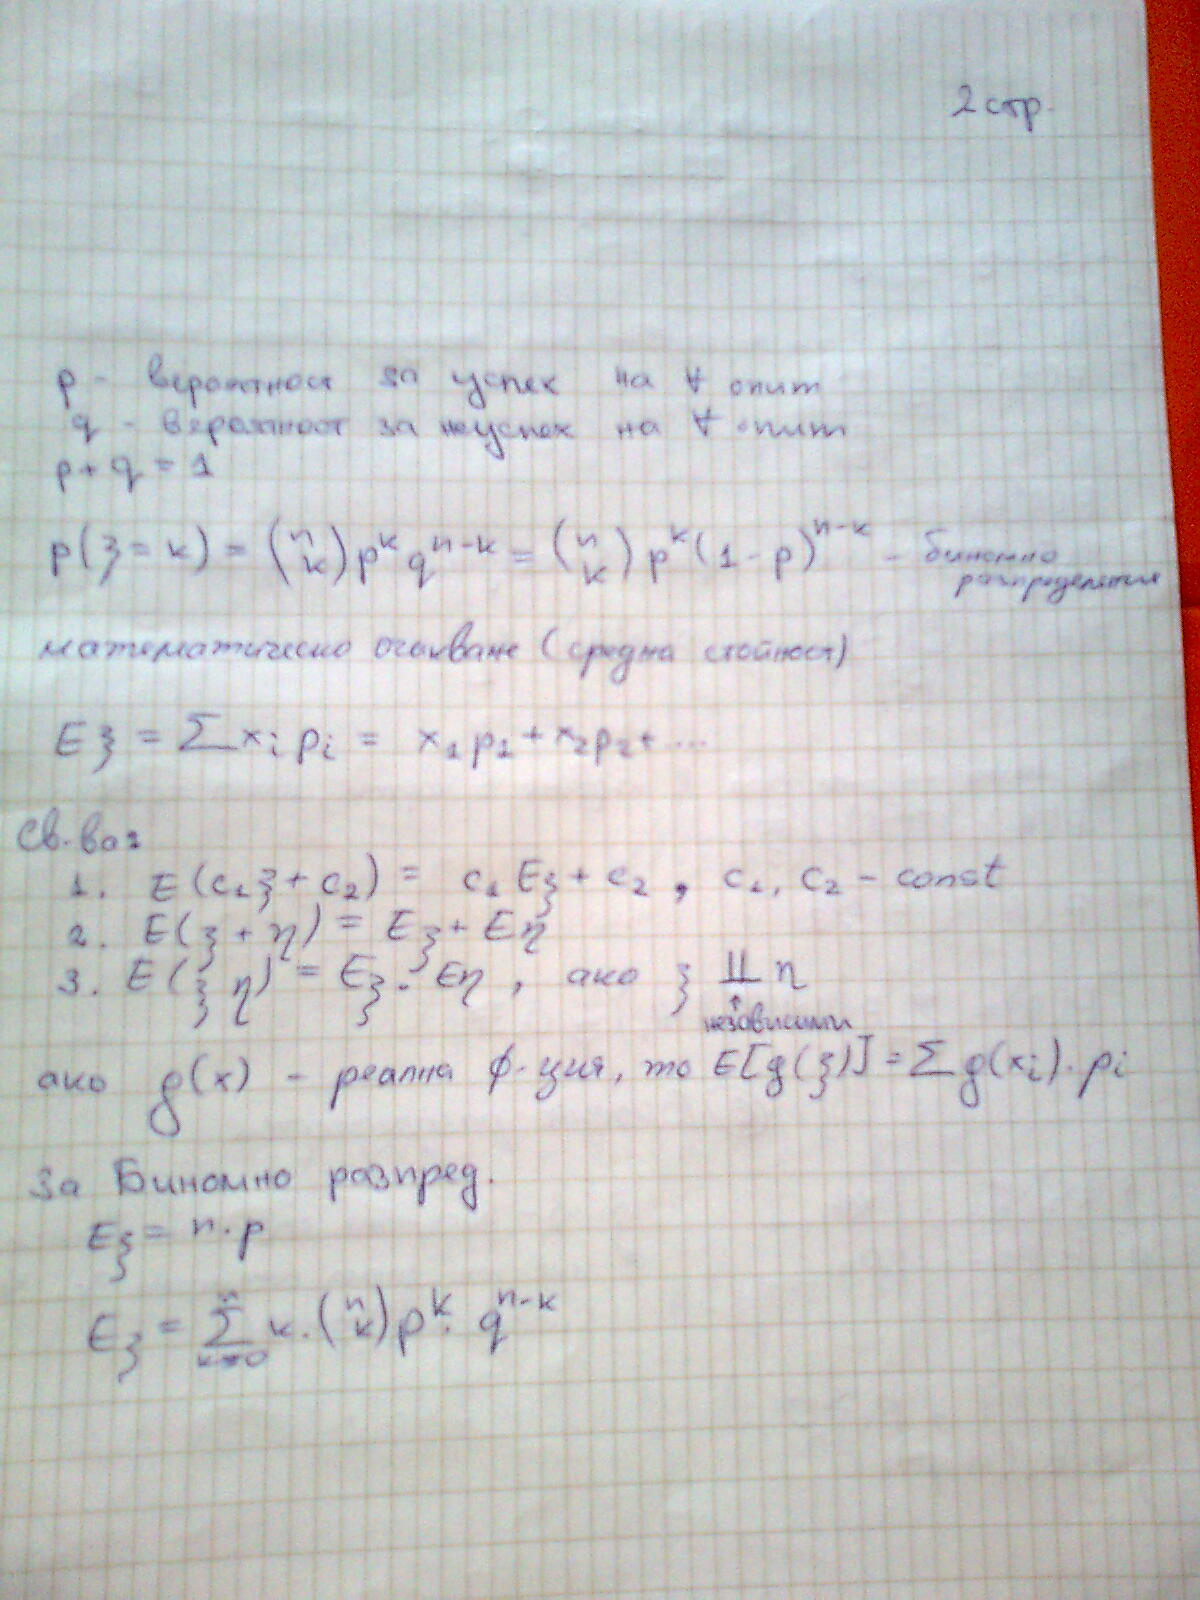 2 стр.
p - вероятност за успех на ∀ опит
q - вероятност за неуспех на ∀ опит
p + q = 1
p(ξ = k) = (n k) p^k q^(n-k) = (n k) p^k (1 - p)^(n-k) - биномно
разпределение
математическо очакване (средна стойност)
Eξ = Σ x_i p_i = x_1 p_1 + x_2 p_2 + ...
Св-ва:
1. E(c_1 ξ + c_2) = c_1 Eξ + c_2 , c_1, c_2 - const
2. E(ξ + η) = Eξ + Eη
3. E(ξ η) = Eξ . Eη , ако ξ ⫫ η
↑
независими
ако g(x) - реална ф-ция, то E[g(ξ)] = Σ g(x_i) . p_i
За Биномно разпред.
Eξ = n . p
Eξ = Σ_(k=0)^n k . (n k) p^k . q^(n-k)